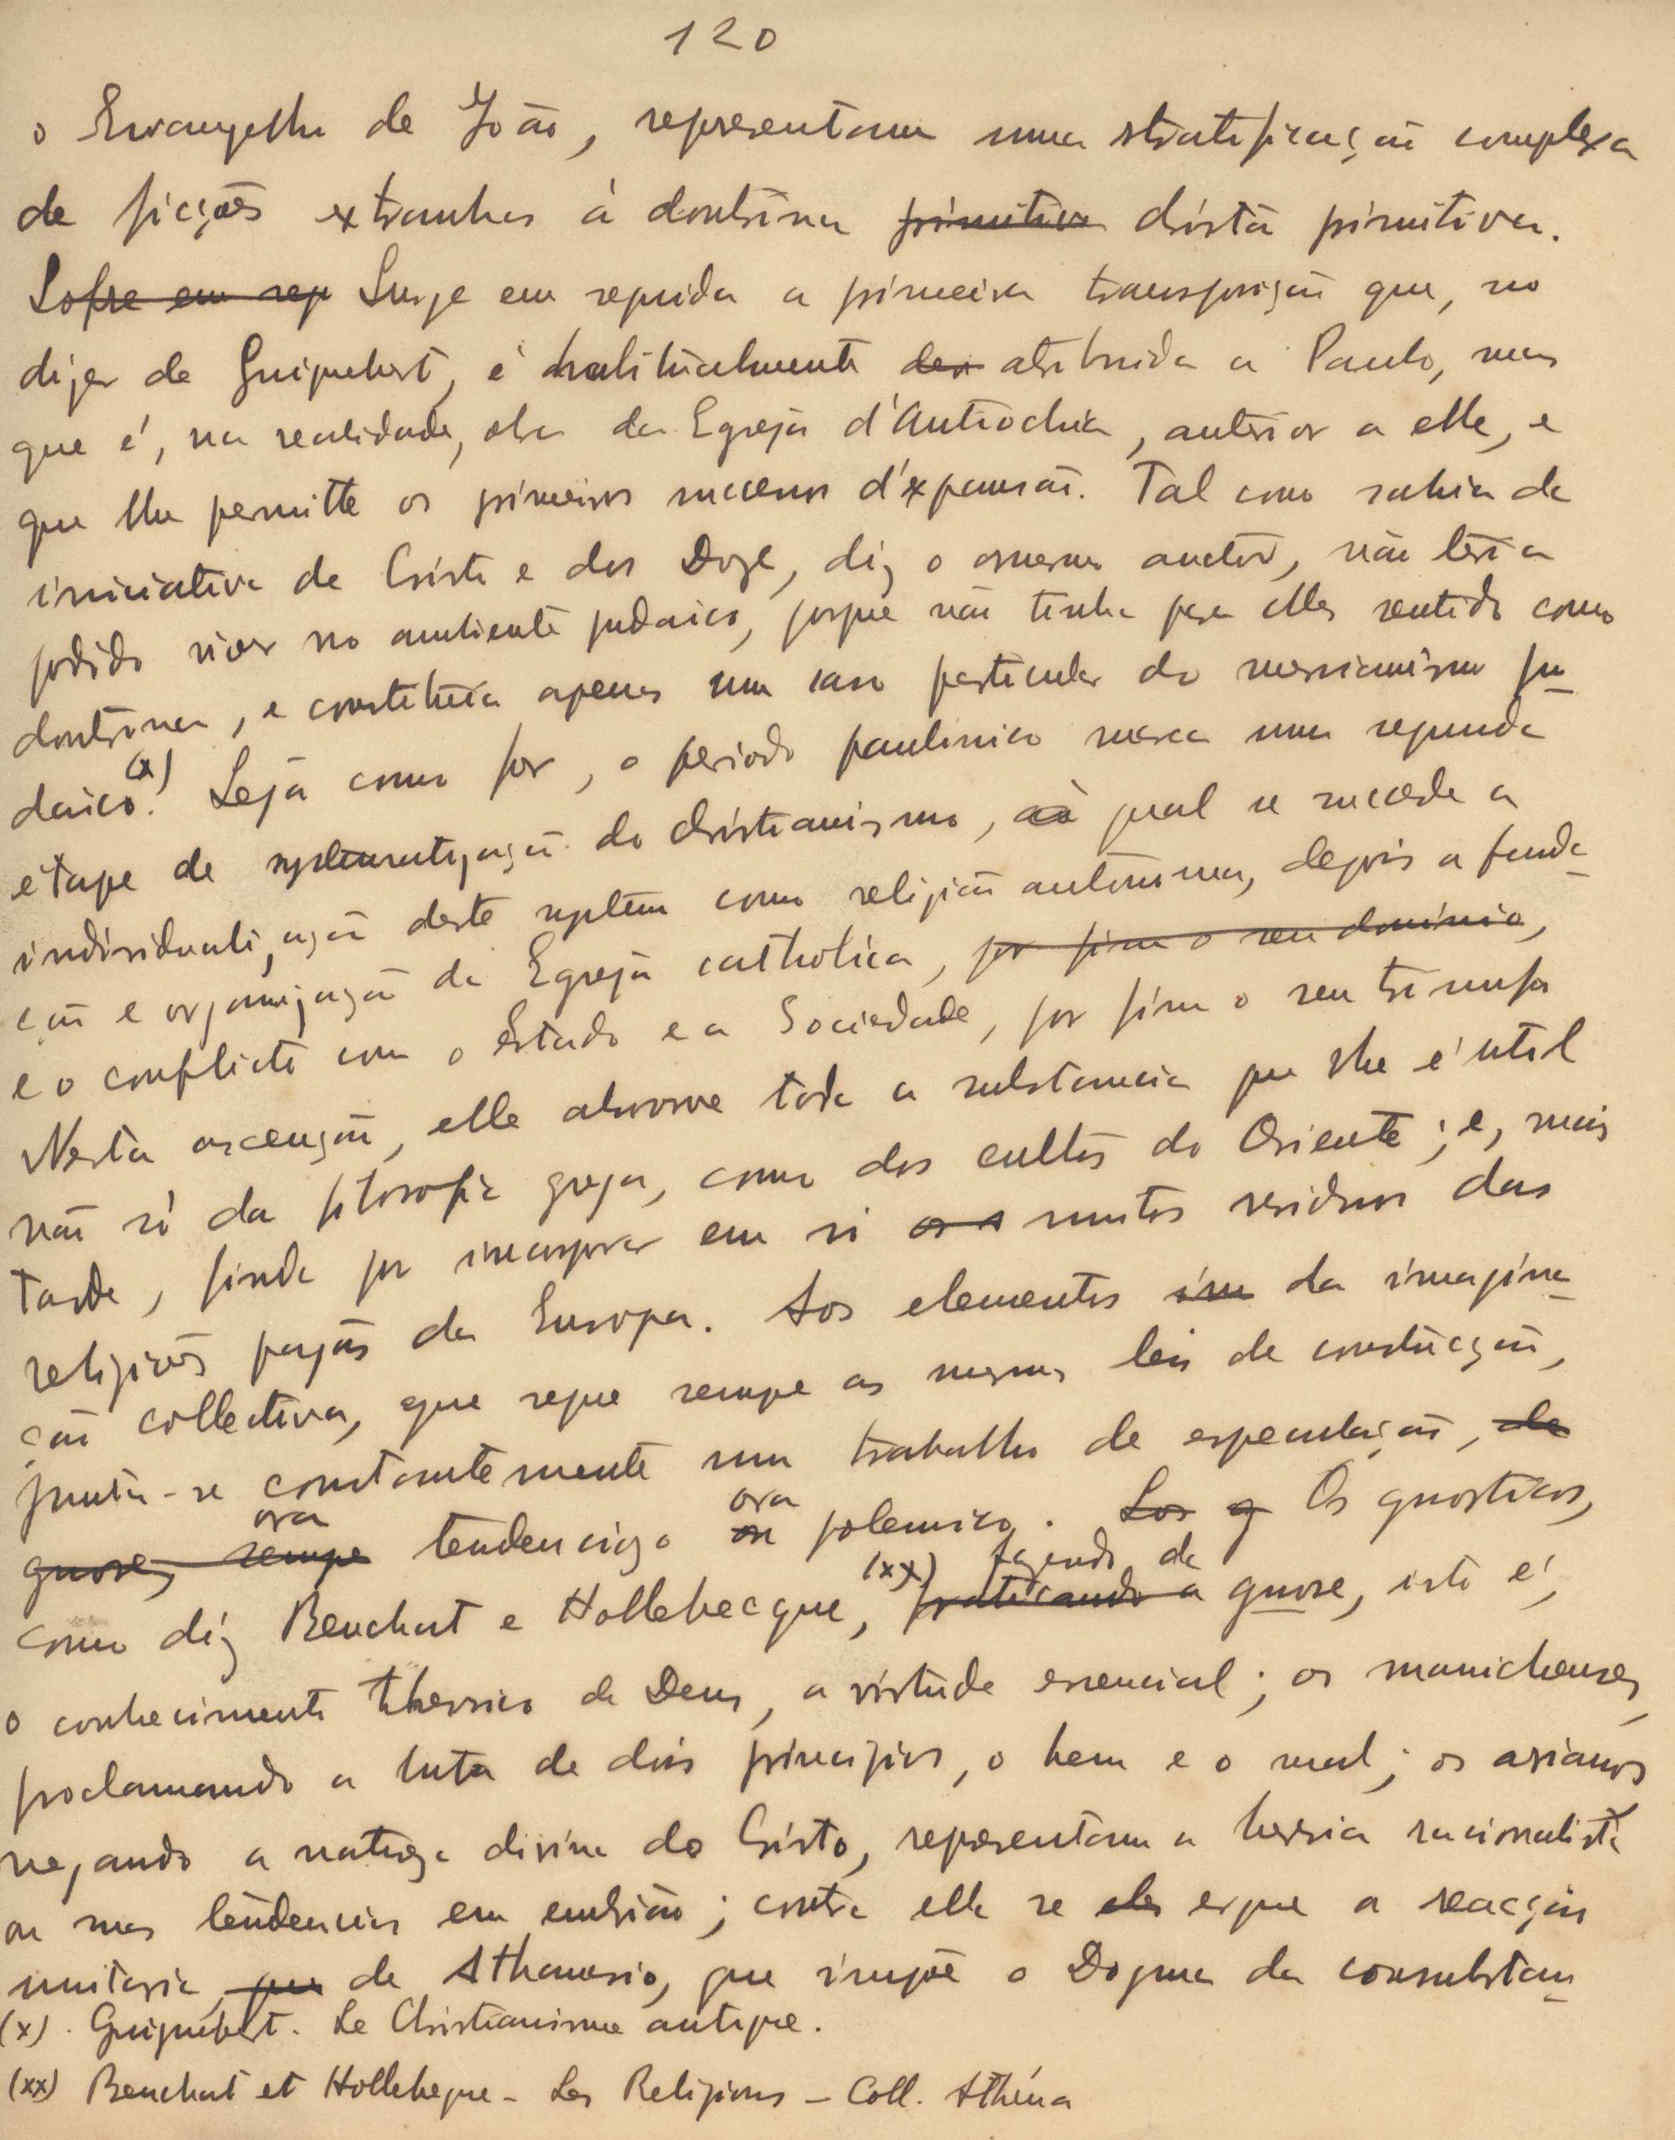 120
o Evangelho de João, representam uma stratificação complexa
de ficções extranhas á doutrina primitiva christã primitiva.
Sofre em seg Surge em seguida a primeira transposição que, no
dizer de Guignebert, é habitualmente attribuida a Paulo, mas
que é, na realidade, obra da Egreja d'Antiochia, anterior a elle, e
que lhe permitte os primeiros successos d'expansão. Tal como sahia da
iniciativa de Cristo e dos Doze, diz o mesmo auctor, não teria
podido viver no ambiente judaico, porque não tinha para elles sentido como
doutrina, e constituia apenas um caso particular do messianismo ju-
daico.(x) Seja como for, o periodo paulinico marca uma segunda
étape de systematização do christianismo, á qual se succede a
individualização deste systema como religião autonoma, depois a funda-
ção e organização da Egreja catholica, por fim o seu dominio,
e o conflicto com o Estado e a Sociedade, por fim o seu triumfo
Nesta ascenção, elle absorve toda a substancia que lhe é util
não só da filosofia grega, como dos cultos do Oriente; e, mais
tarde, finda por incorporar em si os muitos residuos das
religiões pagãs da Europa. Aos elementos im da imagina-
ção collectiva, que segue sempre as mesmas leis de construcção,
junta-se constantemente um trabalho de especulação, de
gnose, sempre ora tendencioso ou ora polemico. Os gnosticos,
como diz Beuchat e Hollebecque,(xx) praticando a fazendo da gnose, isto é,
o conhecimento theorico de Deus, a virtude essencial; os manicheuses,
proclamando a luta de dois principios, o bem e o mal; os arianos
negando a natureza divina do Cristo, representam a heresia racionalista
ou suas tendencias em embrião; contra ella se ergue a reacção
unitaria, que de Athanasio, que impõe o Dogma da consubstan-
(x). Guignebert. Le Christianisme antique.
(xx) Beuchat et Hollebeque - Les Religions - Coll. Athéna